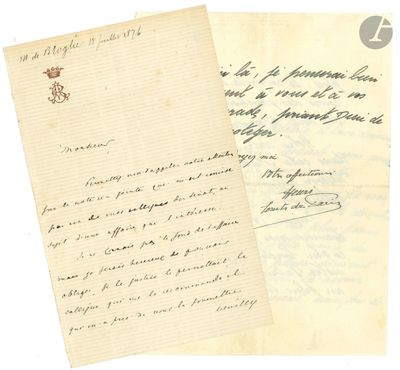 M. de Broglie 18 juillet 1876
Monsieur
Permettez moi d'appeler votre attention
sur la note ci jointe qui m'est remise
par un de mes collègues du Sénat, au
sujet d'une affaire qui l'intéresse.
Je ne connais pas le fond de l'affaire
mais je serais heureux de pouvoir
obliger, si la justice le permettait, le
collègue qui me le recommande et
qui m'a prié de vous la soumettre
veuillez
là, je penserai bien
à vous et à vos
priant Dieu de
moi
Votre affectionné
Henri